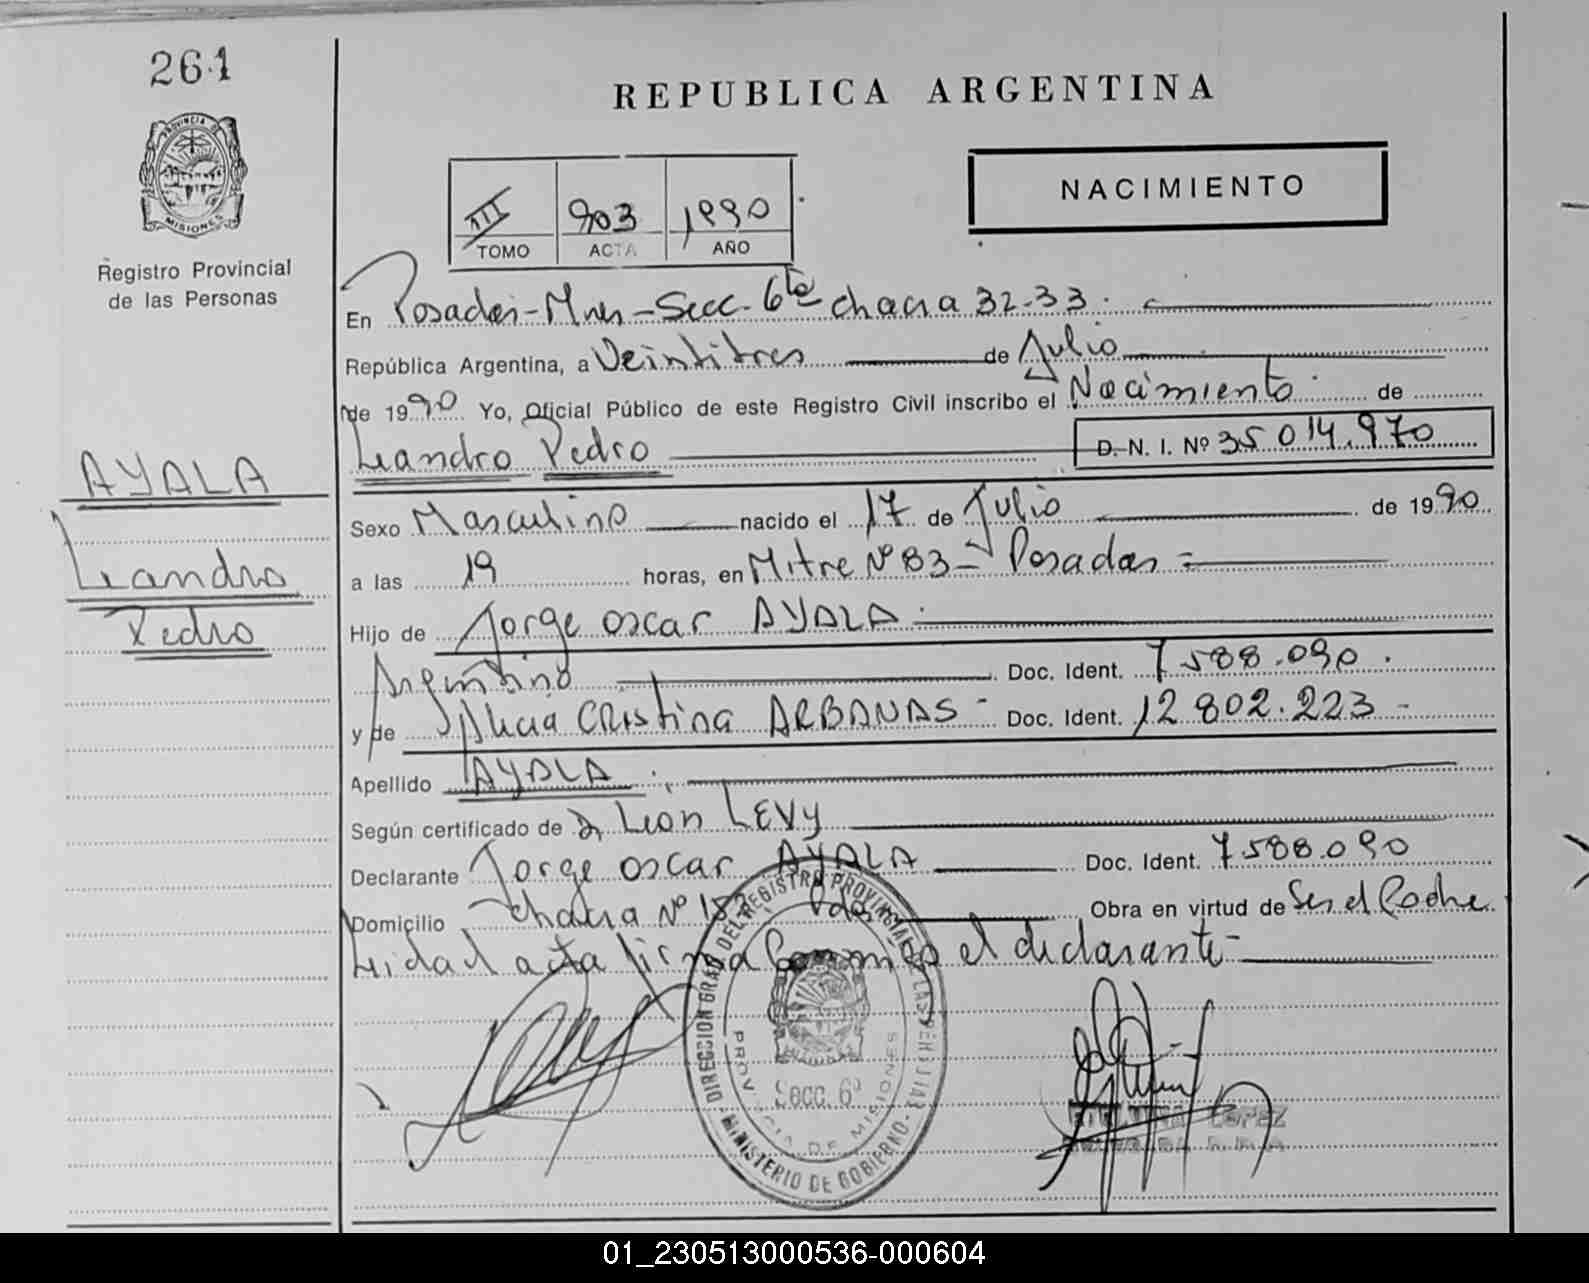 261
REPUBLICA ARGENTINA
PROVINCIA DE MISIONES
NACIMIENTO
III 903 1990
TOMO ACTA AÑO
Registro Provincial
de las Personas
En Posadas-Mnes-Secc. 6ta chacra 32-33.
República Argentina, a Veintitres de Julio
de 1990 Yo, Oficial Público de este Registro Civil inscribo el Nacimiento de
Leandro Pedro D. N. I. Nº 35.014.970
AYALA
Leandro
Pedro
Sexo Masculino nacido el 17 de Julio de 1990
a las 19 horas, en Mitre Nº 83 - Posadas =
Hijo de Jorge oscar AYALA
Argentino Doc. Ident. 7.588.090.
y de Alicia CRistina ARBANAS - Doc. Ident. 12.802.223 -
Apellido AYALA
Según certificado de Dr Leon LEVY
Declarante Jorge oscar AYALA Doc. Ident. 7.588.090
Domicilio chacra Nº 183 Pdas Obra en virtud de Ser el Padre
Leida el acta firma conmigo el declarante-
DIRECCION GRAL DEL REGISTRO PROVINCIAL DE LAS PERSONAS
MINISTERIO DE GOBIERNO
PROVINCIA DE MISIONES
Secc. 6º
LOPEZ
01_230513000536-000604